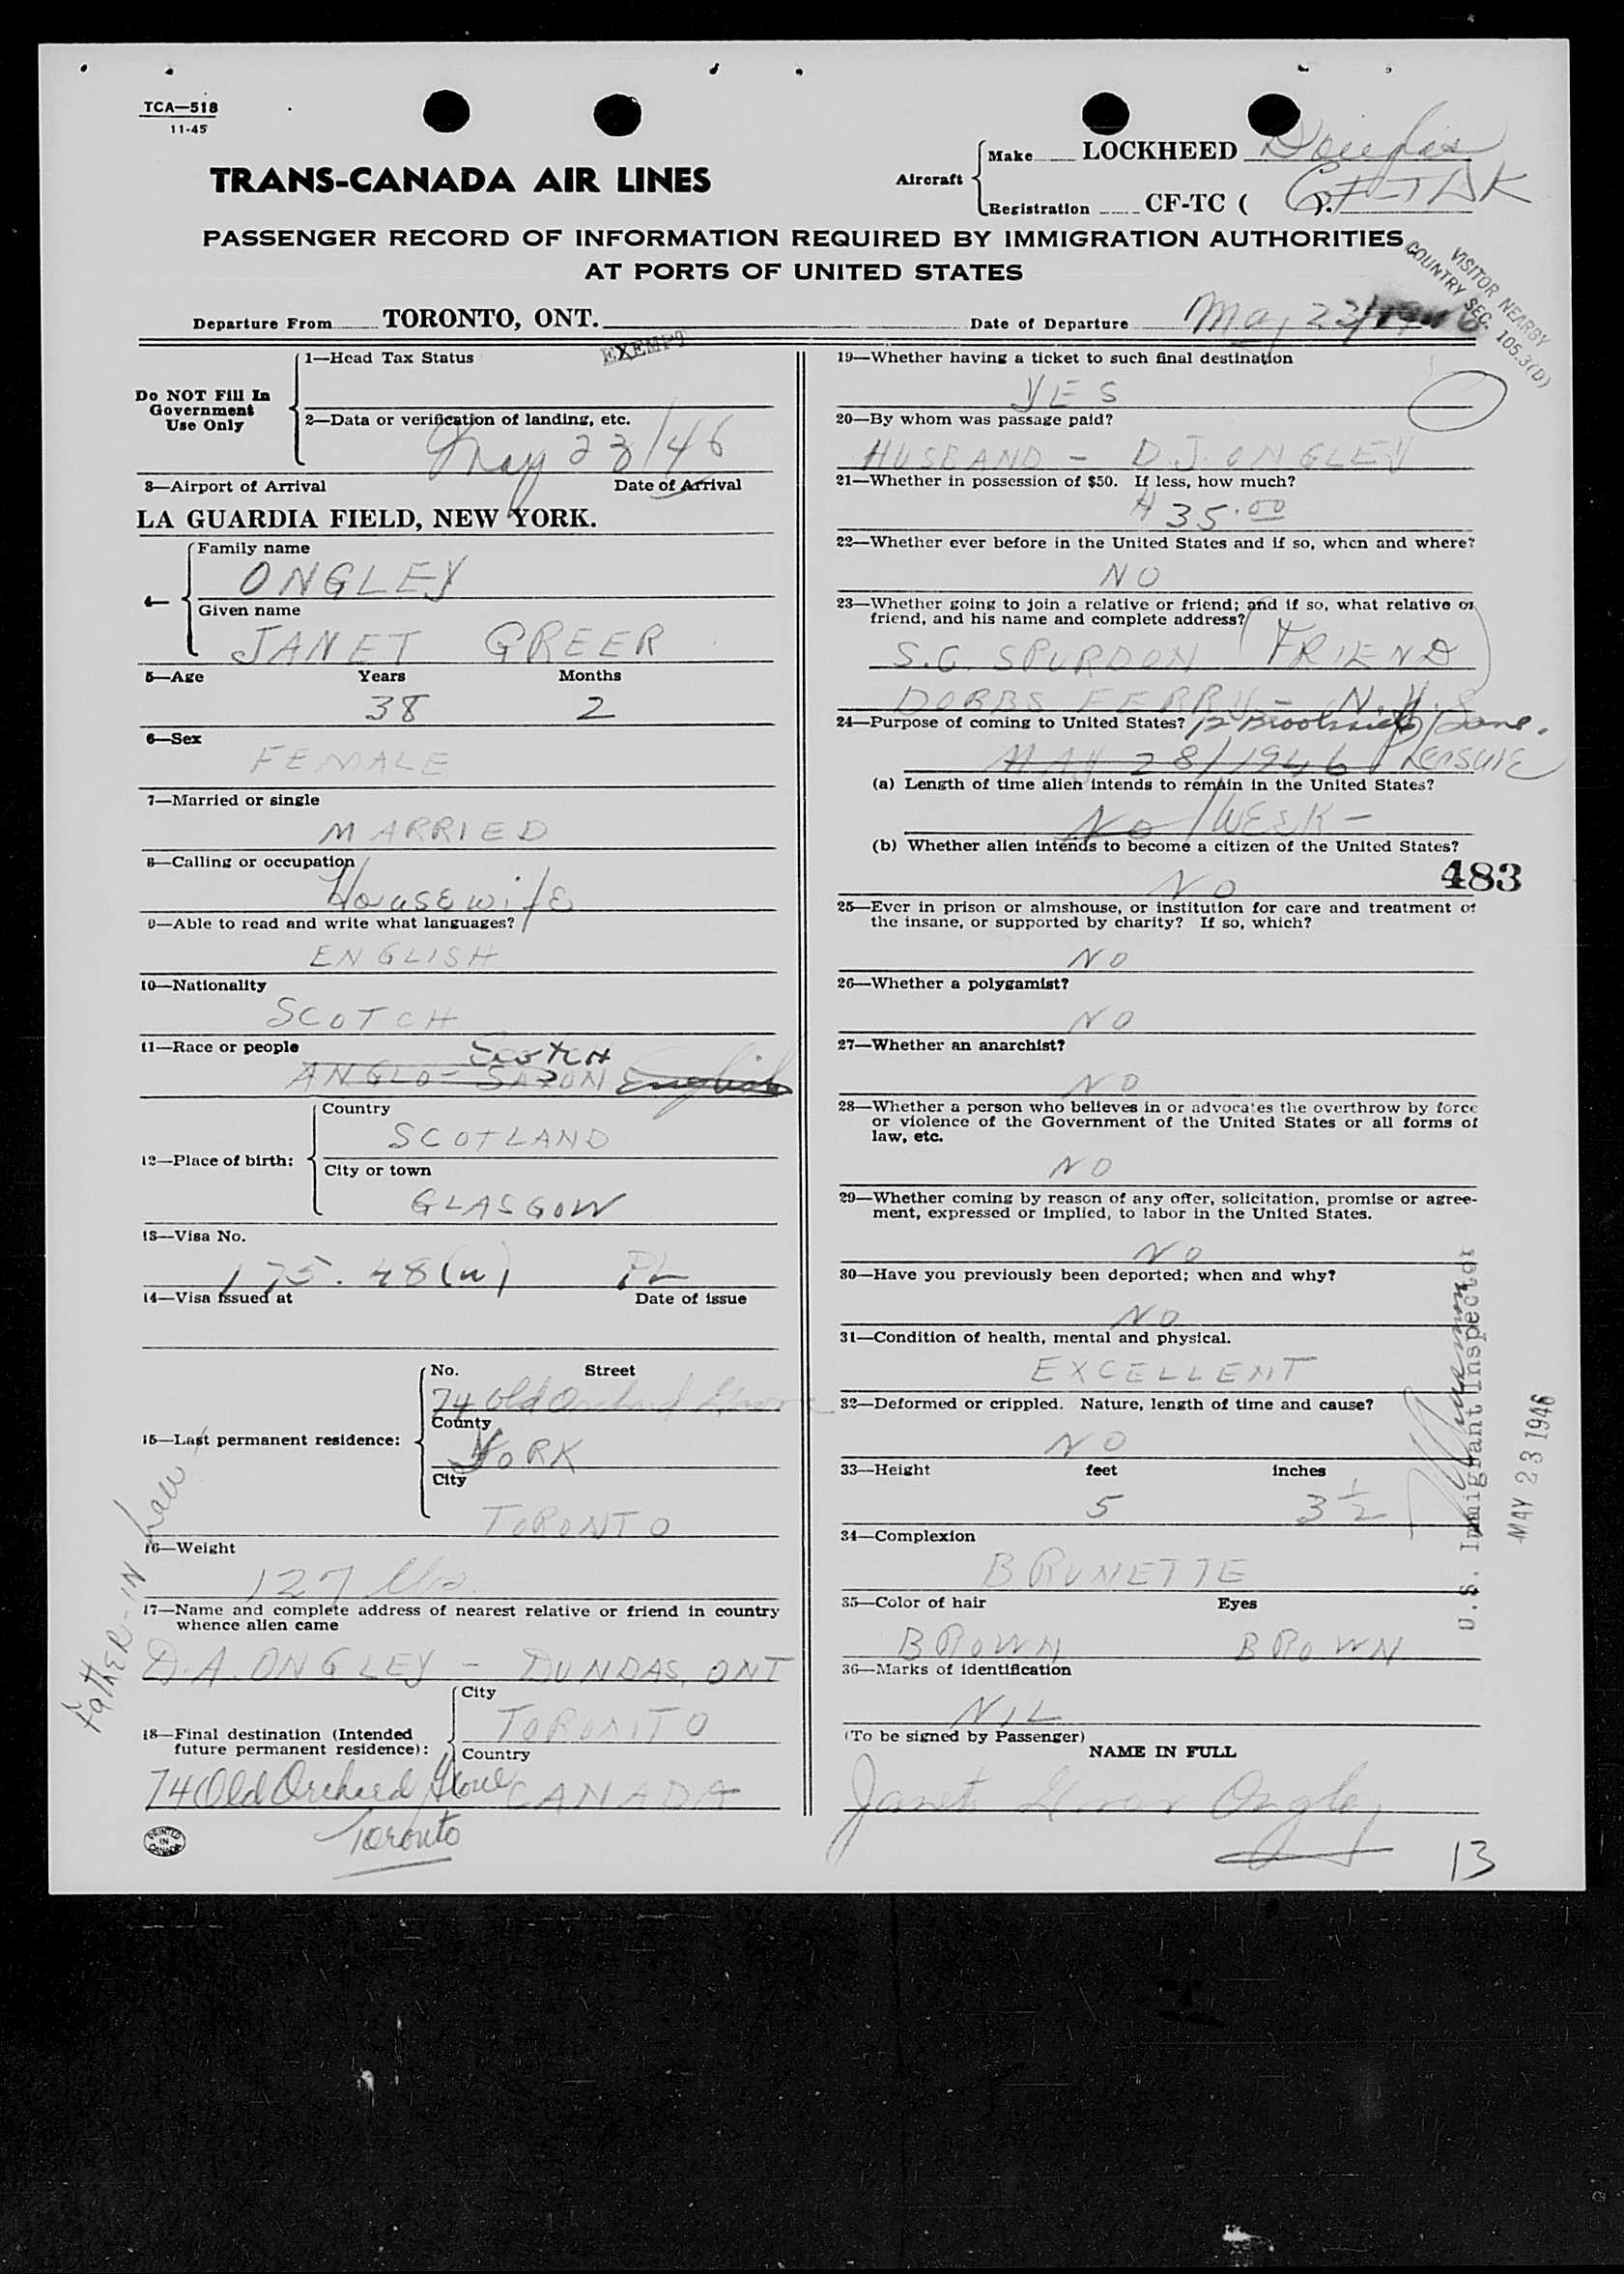 TCA—518
11-45
TRANS-CANADA AIR LINES
Aircraft
Make LOCKHEED Douglas
Registration CF-TC ( ). CF-TDK
PASSENGER RECORD OF INFORMATION REQUIRED BY IMMIGRATION AUTHORITIES
AT PORTS OF UNITED STATES
VISITOR NEARBY
COUNTRY SEC. 105.3(D)
Departure From TORONTO, ONT.
Date of Departure May 23/1946
Do NOT Fill In
Government
Use Only
1—Head Tax Status EXEMPT
2—Data or verification of landing, etc.
May 23/46
3—Airport of Arrival Date of Arrival
LA GUARDIA FIELD, NEW YORK.
4—
Family name
ONGLEY
Given name
JANET GREER
5—Age Years Months
38 2
6—Sex
FEMALE
7—Married or single
MARRIED
8—Calling or occupation
Housewife
9—Able to read and write what languages?
ENGLISH
10—Nationality
SCOTCH
11—Race or people SCOTCH
ANGLO-SAXON English
12—Place of birth:
Country
SCOTLAND
City or town
GLASGOW
13—Visa No.
175.48(u) PL
14—Visa issued at Date of issue
15—Last permanent residence:
No. Street
74 Old Orchard Grove
County
YORK
City
TORONTO
16—Weight
127 lbs.
17—Name and complete address of nearest relative or friend in country
whence alien came
D.A. ONGLEY - DUNDAS, ONT
FATHER-IN Law
18—Final destination (Intended
future permanent residence):
City
TORONTO
Country
CANADA
74 Old Orchard Grove
Toronto
PRINTED
IN
CANADA
19—Whether having a ticket to such final destination
YES
20—By whom was passage paid?
HUSBAND - D.J. ONGLEY
21—Whether in possession of $50. If less, how much?
$35.00
22—Whether ever before in the United States and if so, when and where?
NO
23—Whether going to join a relative or friend; and if so, what relative or
friend, and his name and complete address?
S.G. SPURDON (FRIEND)
DOBBS FERRY - N.Y.
24—Purpose of coming to United States? 12 Brookside Lane.
MAY 28/1946 Pleasure
(a) Length of time alien intends to remain in the United States?
NO 1 WEEK -
(b) Whether alien intends to become a citizen of the United States?
NO
483
25—Ever in prison or almshouse, or institution for care and treatment of
the insane, or supported by charity? If so, which?
NO
26—Whether a polygamist?
NO
27—Whether an anarchist?
NO
28—Whether a person who believes in or advocates the overthrow by force
or violence of the Government of the United States or all forms of
law, etc.
NO
29—Whether coming by reason of any offer, solicitation, promise or agree-
ment, expressed or implied, to labor in the United States.
NO
30—Have you previously been deported; when and why?
NO
31—Condition of health, mental and physical.
EXCELLENT
32—Deformed or crippled. Nature, length of time and cause?
NO
33—Height feet inches
5 3 1/2
34—Complexion
BRUNETTE
35—Color of hair Eyes
BROWN BROWN
36—Marks of identification
NIL
U.S. Immigrant Inspector
MAY 23 1946
(To be signed by Passenger)
NAME IN FULL
Janet Greer Ongley
13